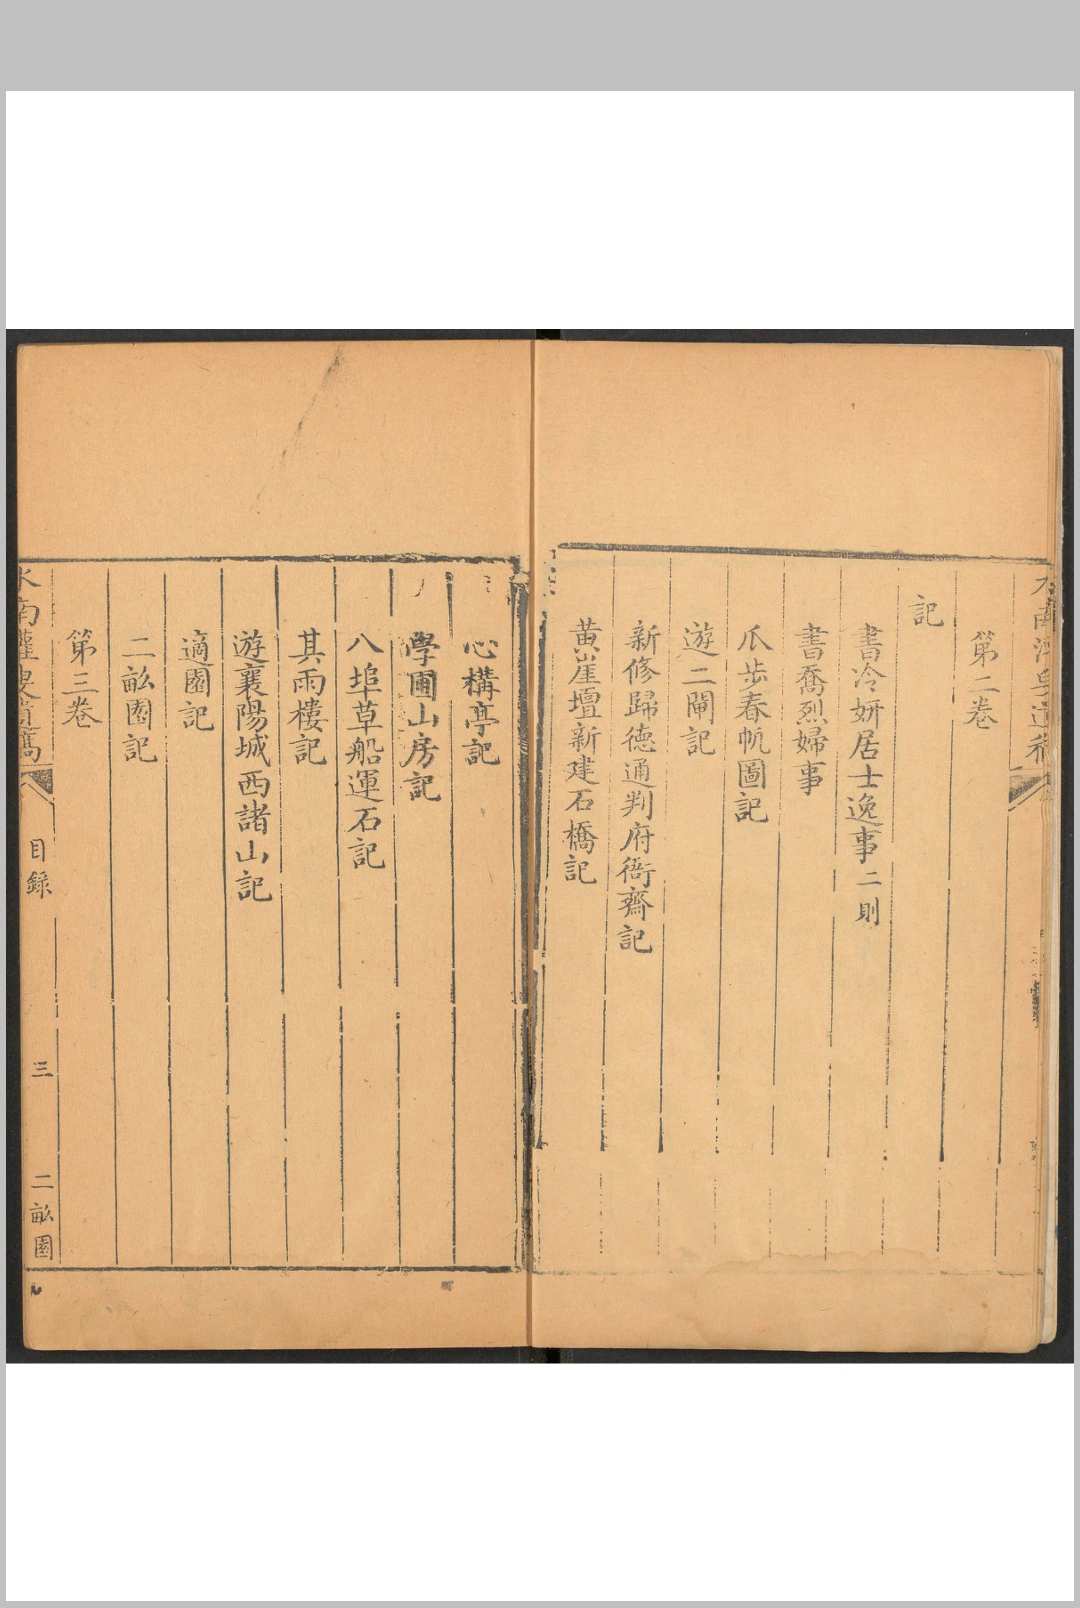 第二卷
記
書冷妍居士逸事二則
書喬烈婦事
瓜步春帆圖記
遊二閘記
新修歸德通判府衙齋記
黃崖壇新建石橋記
心構亭記
學圃山房記
八埠草船運石記
其雨樓記
遊襄陽城西諸山記
適園記
二畝園記
第三卷
目錄 三 二畝園